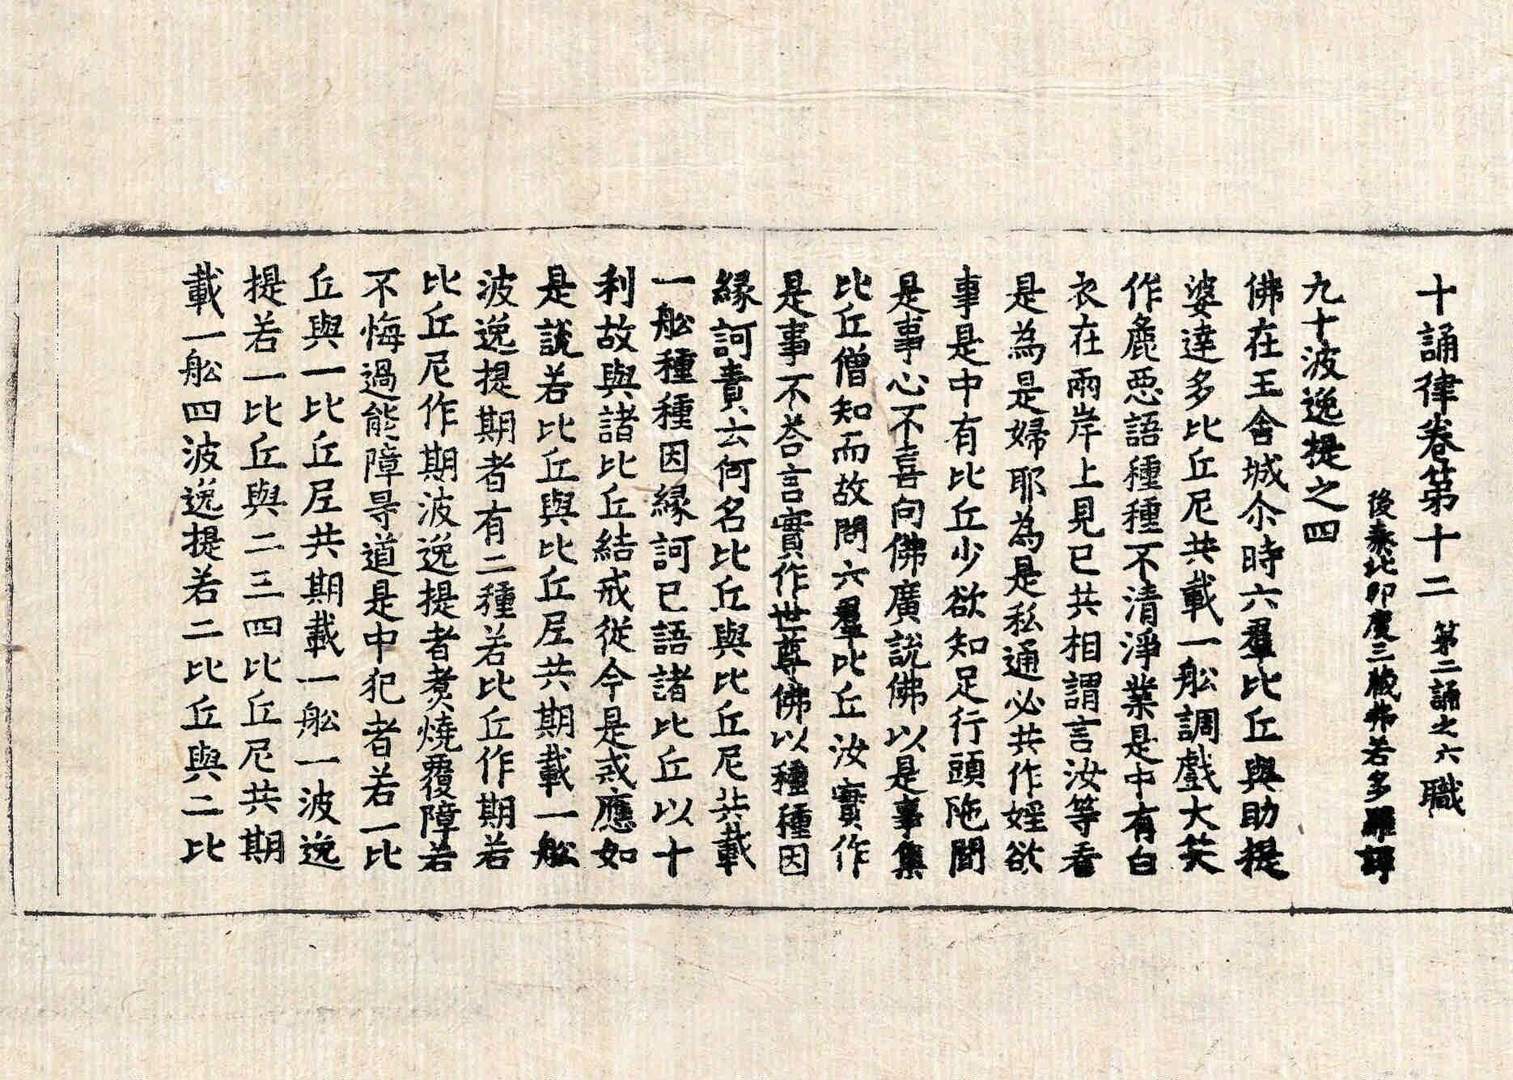 十誦律卷第十二 第二誦之六 職
後秦北印度三藏弗若多羅譯
九十波逸提之四
佛在王舍城尒時六羣比丘與助提
婆達多比丘尼共載一舩調戲大笑
作麁惡語種種不清淨業是中有白
衣在兩岸上見已共相謂言汝等看
是為是婦耶為是私通必共作婬欲
事是中有比丘少欲知足行頭陁聞
是事心不喜向佛廣說佛以是事集
比丘僧知而故問六羣比丘汝實作
是事不荅言實作世尊佛以種種因
緣訶責云何名比丘與比丘尼共載
一舩種種因緣訶已語諸比丘以十
利故與諸比丘結戒從今是戒應如
是說若比丘與比丘尼共期載一舩
波逸提期者有二種若比丘作期若
比丘尼作期波逸提者煑燒覆障若
不悔過能障㝵道是中犯者若一比
丘與一比丘尼共期載一舩一波逸
提若一比丘與二三四比丘尼共期
載一舩四波逸提若二比丘與二比